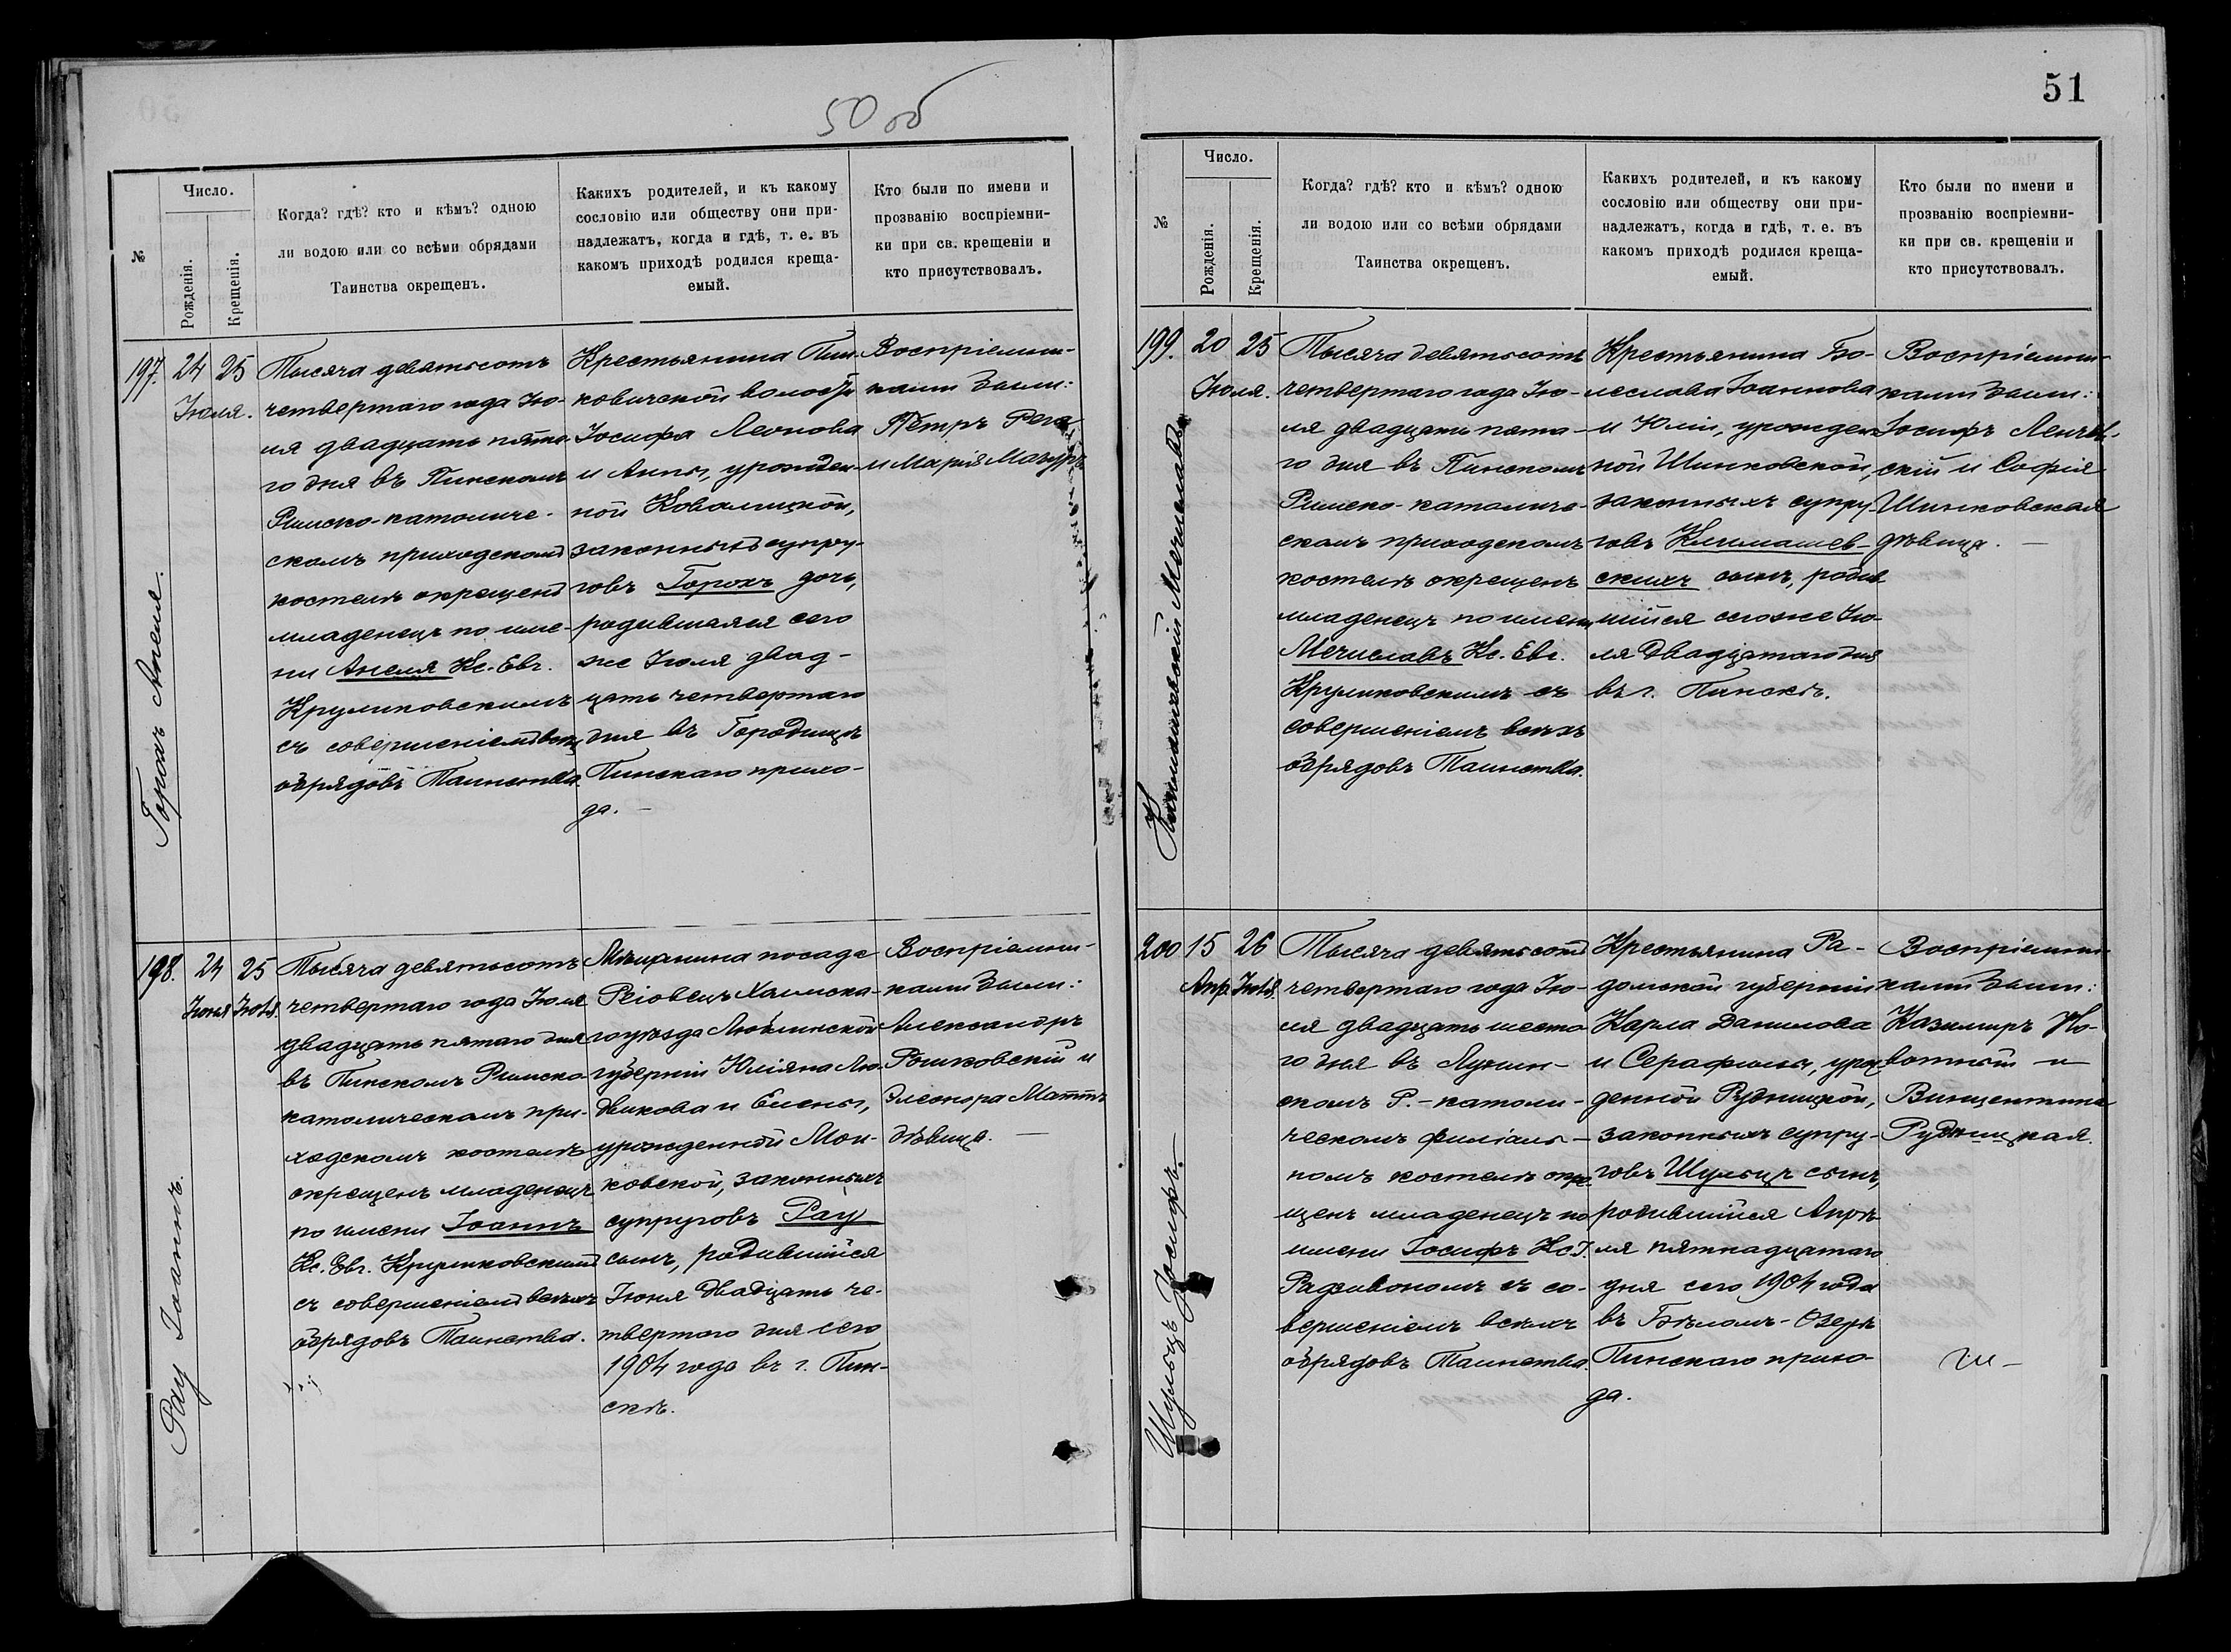 50 об
№
Число.
Рожденія.
Крещенія.
Когда? гдѣ? кто и кѣмъ? одною
ли водою или со всѣми обрядами
Таинства окрещенъ.
Какихъ родителей, и къ какому
сословію или обществу они при-
надлежатъ, когда и гдѣ, т. е. въ
какомъ приходѣ родился креща-
емый.
Кто были по имени и
прозванію воспріемни-
ки при св. крещеніи и
кто присутствовалъ.
197.
Горохъ Анеля.
24
25
Іюля.
Тысяча девятьсотъ
четвертаго года Ію-
ля двадцать пята-
го дня въ Пинскомъ
Римско-католиче-
скомъ приходскомъ
костелѣ окрещенъ
младенецъ по име-
ни Анеля Кс. Евг.
Круликовскимъ
съ совершеніемъ всѣхъ
обрядовъ Таинства.
Крестьянина Пин-
ковичской волости
Іосифа Леонова
и Анны, урожден-
ной Ковалицкой,
законныхъ супру-
говъ Горохъ дочь,
родившаяся сего
же Іюля двад-
цать четвертаго
дня въ Городищѣ
Пинскаго прихо-
да. —
Воспріемни-
ками были:
Петръ
и Марія Мазуръ
198.
Рау Іоаннъ.
24
25
Іюня Іюля.
Тысяча девятьсотъ
четвертаго года Іюля
двадцать пятаго дня
въ Пинскомъ Римско-
католическомъ при-
ходскомъ костелѣ
окрещенъ младенецъ
по имени Іоаннъ
Кс. Евг. Круликовскимъ
съ совершеніемъ всѣхъ
обрядовъ Таинства.
Мѣщанина посада
Реіовецъ Холмска-
го уѣзда Люблинской
губерніи Юліяна Лю-
двикова и Елены,
урожденной Мон-
ковской, законныхъ
супруговъ Рау
сынъ, родившійся
Іюня двадцать че-
твертаго дня сего
1904 года въ г. Пин-
скѣ.
Воспріемни-
ками были:
Александръ
Рошковскій и
Элеонора Маттъ
дѣвица. —
51
№
Число.
Рожденія.
Крещенія.
Когда? гдѣ? кто и кѣмъ? одною
ли водою или со всѣми обрядами
Таинства окрещенъ.
Какихъ родителей, и къ какому
сословію или обществу они при-
надлежатъ, когда и гдѣ, т. е. въ
какомъ приходѣ родился креща-
емый.
Кто были по имени и
прозванію воспріемни-
ки при св. крещеніи и
кто присутствовалъ.
199.
Климашевскій Мечиславъ
20
25
Іюля.
Тысяча девятьсотъ
четвертаго года Ію-
ля двадцать пята-
го дня въ Пинскомъ
Римско-католиче-
скомъ приходскомъ
костелѣ окрещенъ
младенецъ по имени
Мечиславъ Кс. Евг.
Круликовскимъ съ
совершеніемъ всѣхъ
обрядовъ Таинства.
Крестьянина Бо-
леслава Іоаннова
и Юліи, урожден-
ной Шинковской,
законныхъ супру-
говъ Климашев-
скихъ сынъ, родив-
шійся сего же Ію-
ля двадцатаго дня
въ г. Пинскѣ.
Воспріемни-
ками были:
Іосифъ Ленчев-
скій и Софія
Шинковская
дѣвица. —
200
Шульцъ Іосифъ.
15
26
Апр. Іюля.
Тысяча девятьсотъ
четвертаго года Ію-
ля двадцать шеста-
го дня въ Лунин-
скомъ Р.-католи-
ческомъ филіаль-
номъ костелѣ окре-
щенъ младенецъ по
имени Іосифъ Кс. І.
Радзивономъ съ со-
вершеніемъ всѣхъ
обрядовъ Таинства.
Крестьянина Ра-
домской губерніи
Карла Данилова
и Серафины, урож-
денной Рудницкой,
законныхъ супру-
говъ Шульцъ сынъ,
родившійся Апрѣ-
ля пятнадцатаго
дня сего 1904 года
въ Бѣломъ-Озерѣ
Пинскаго прихо-
да.
Воспріемни-
ками были:
Казимиръ Но-
вотный и
Винцентина
Рудницкая.